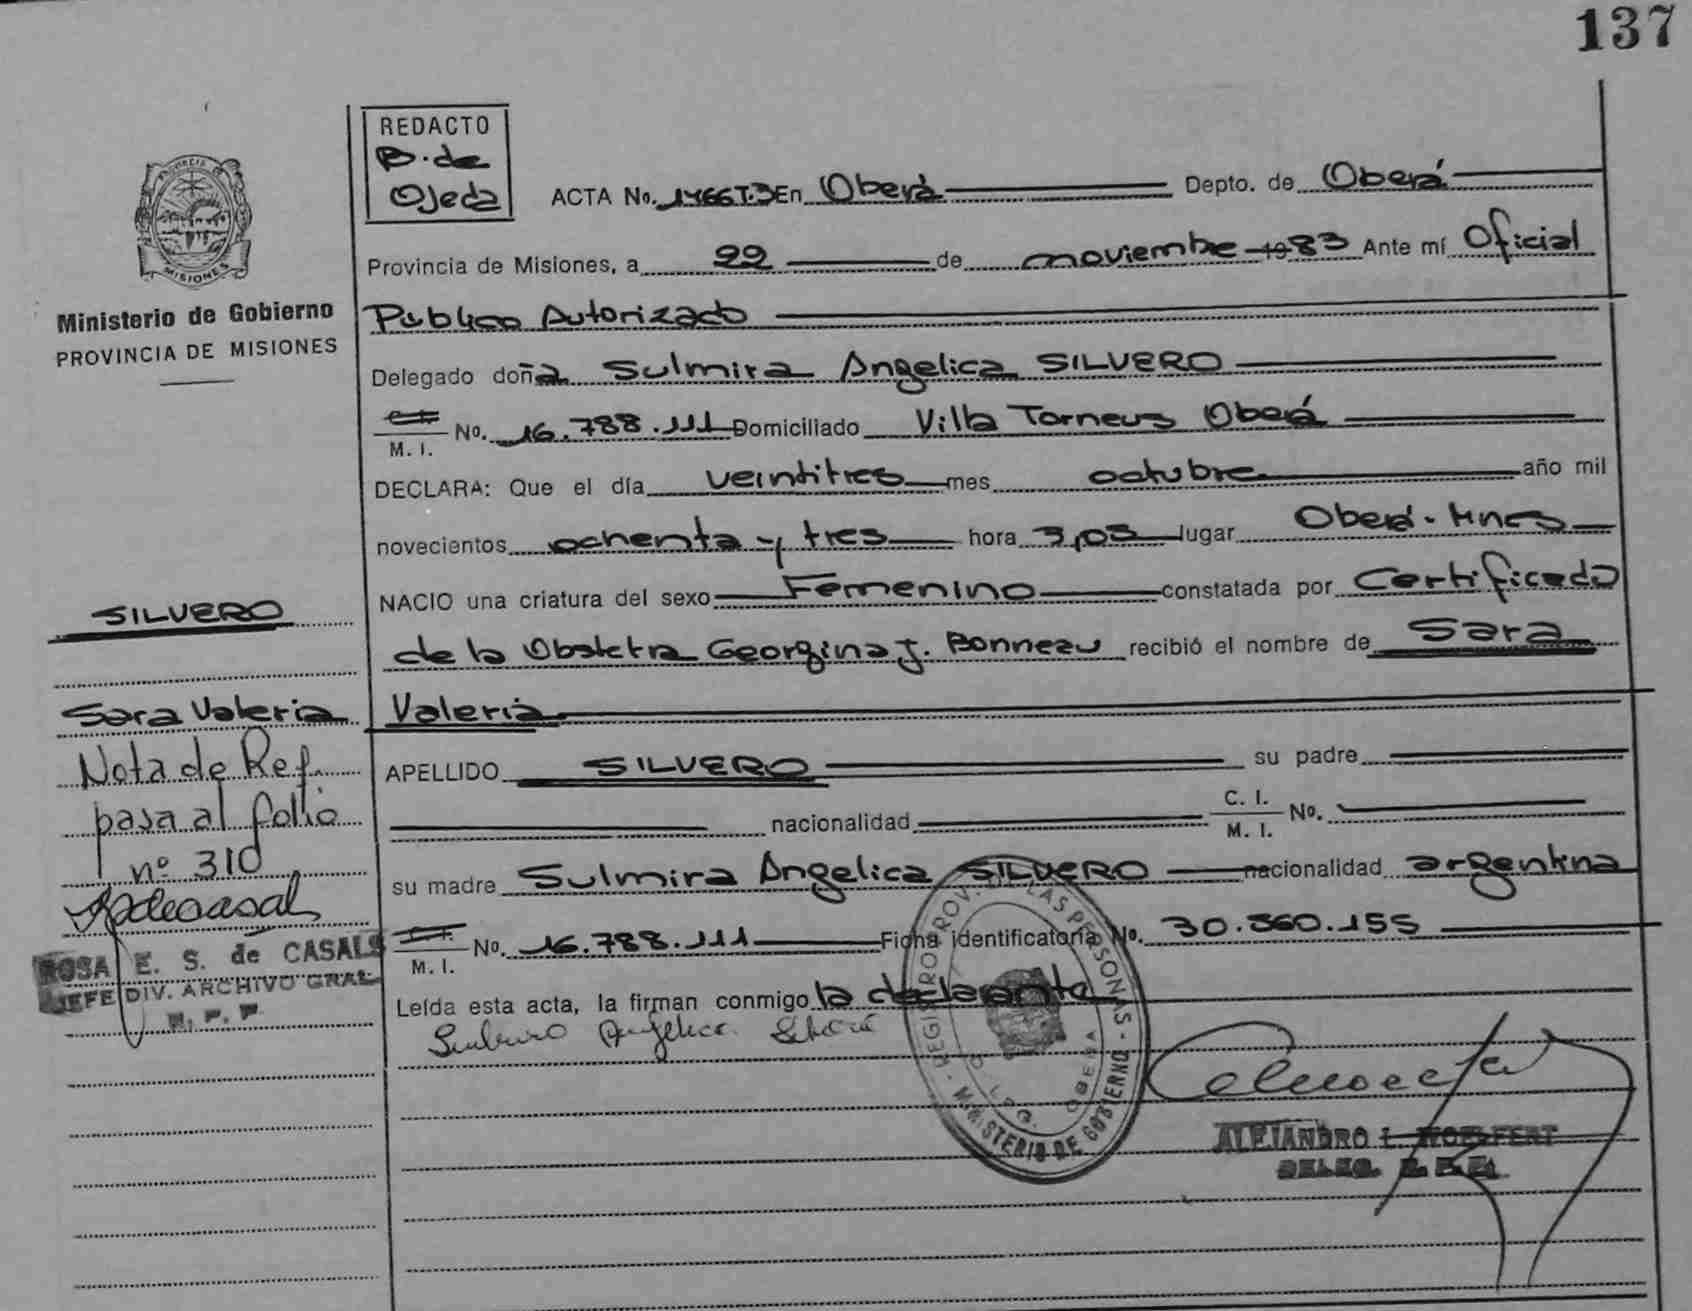 137
REDACTO
B. de
Ojeda
ACTA No. 1466 T.3 En Oberá Depto. de Oberá
Provincia de Misiones, a 22 de noviembre 1983 Ante mí Oficial
Publico Autorizado
Delegado doña Sulmira Angelica SILVERO
M. I. No. 16.788.111 Domiciliado Villa Torneus Oberá
DECLARA: Que el día veintitres mes octubre año mil
novecientos ochenta y tres hora 3,05 lugar Oberá - Mnes
NACIO una criatura del sexo Femenino constatada por Certificado
de la Obstetra Georgina J. Bonneau recibió el nombre de Sara
Valeria
APELLIDO SILVERO su padre
nacionalidad C. I. M. I. No.
su madre Sulmira Angelica SILVERO nacionalidad argentina
M. I. No. 16.788.111 Ficha identificatoria No. 30.360.155
Leída esta acta, la firman conmigo la declarante
REGISTRO PROV. DE LAS PERSONAS - MINISTERIO DE GOBIERNO
OBERA
ALEJANDRO L.
DELEG.
MISIONES
Ministerio de Gobierno
PROVINCIA DE MISIONES
SILVERO
Sara Valeria
Nota de Ref.
pasa al folio
nº 310
ROSA E. S. de CASALS
JEFE DIV. ARCHIVO GRAL